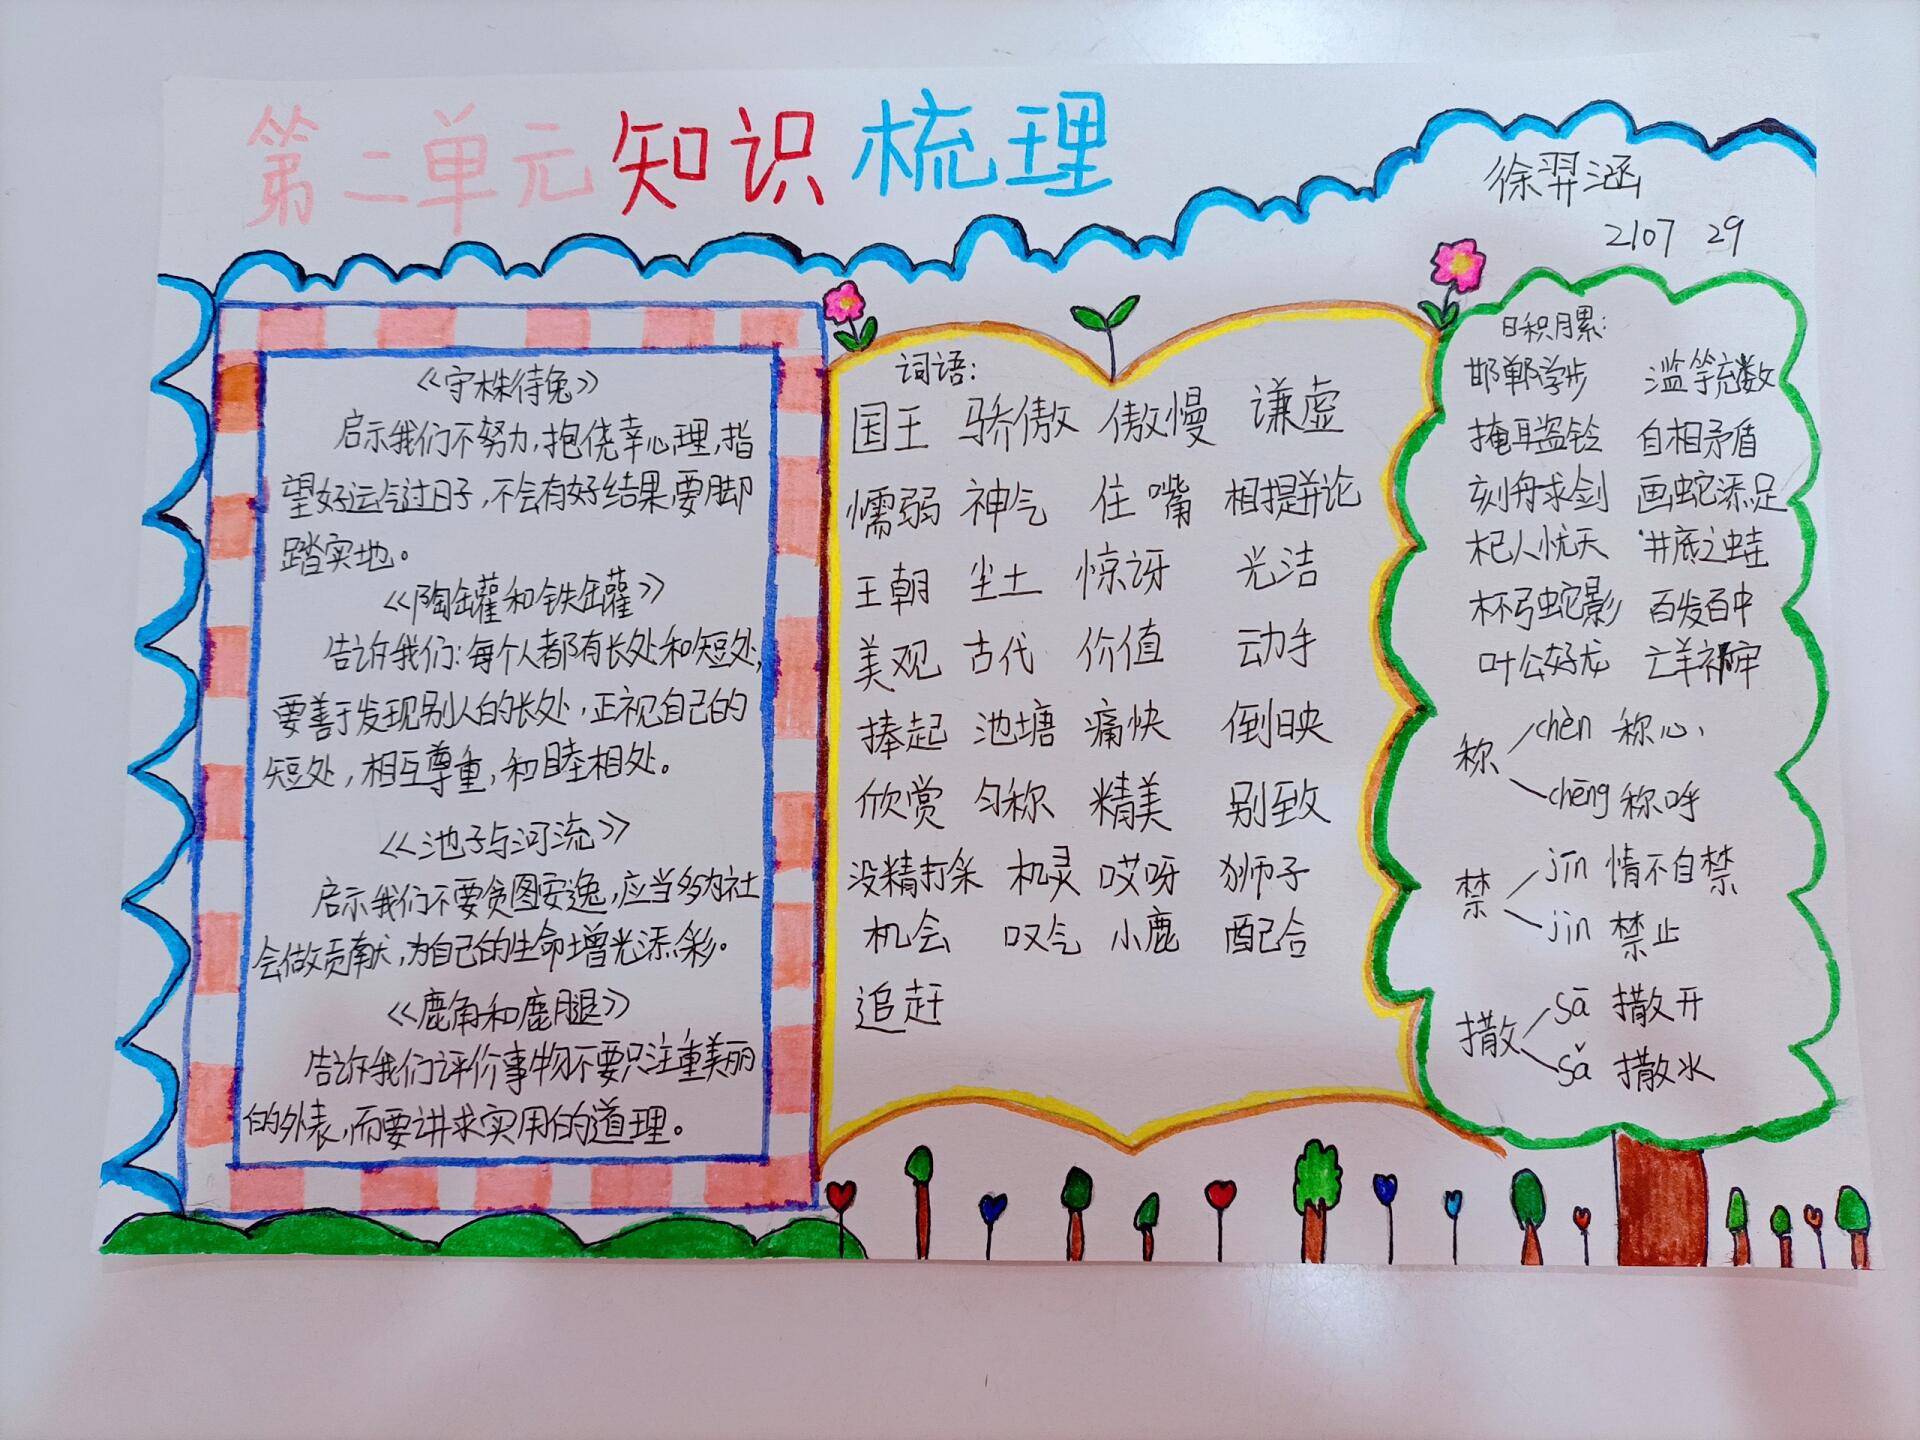 第二单元知识梳理
徐羿涵
2107 29
《守株待兔》
启示我们不努力,抱侥幸心理,指
望好运气过日子,不会有好结果,要脚
踏实地。
《陶罐和铁罐》
告诉我们:每个人都有长处和短处,
要善于发现别人的长处,正视自己的
短处,相互尊重,和睦相处。
《池子与河流》
启示我们不要贪图安逸,应当多为社
会做贡献,为自己的生命增光添彩。
《鹿角和鹿腿》
告诉我们评价事物不要只注重美丽
的外表,而要讲求实用的道理。
词语:
国王 骄傲 傲慢 谦虚
懦弱 神气 住嘴 相提并论
王朝 尘土 惊讶 光洁
美观 古代 价值 动手
捧起 池塘 痛快 倒映
欣赏 匀称 精美 别致
没精打采 机灵 哎呀 狮子
机会 叹气 小鹿 配合
追赶
日积月累:
邯郸学步 滥竽充数
掩耳盗铃 自相矛盾
刻舟求剑 画蛇添足
杞人忧天 井底之蛙
杯弓蛇影 百发百中
叶公好龙 亡羊补牢
称 chèn 称心
chēng 称呼
禁 jīn 情不自禁
jìn 禁止
撒 sā 撒开
sǎ 撒水